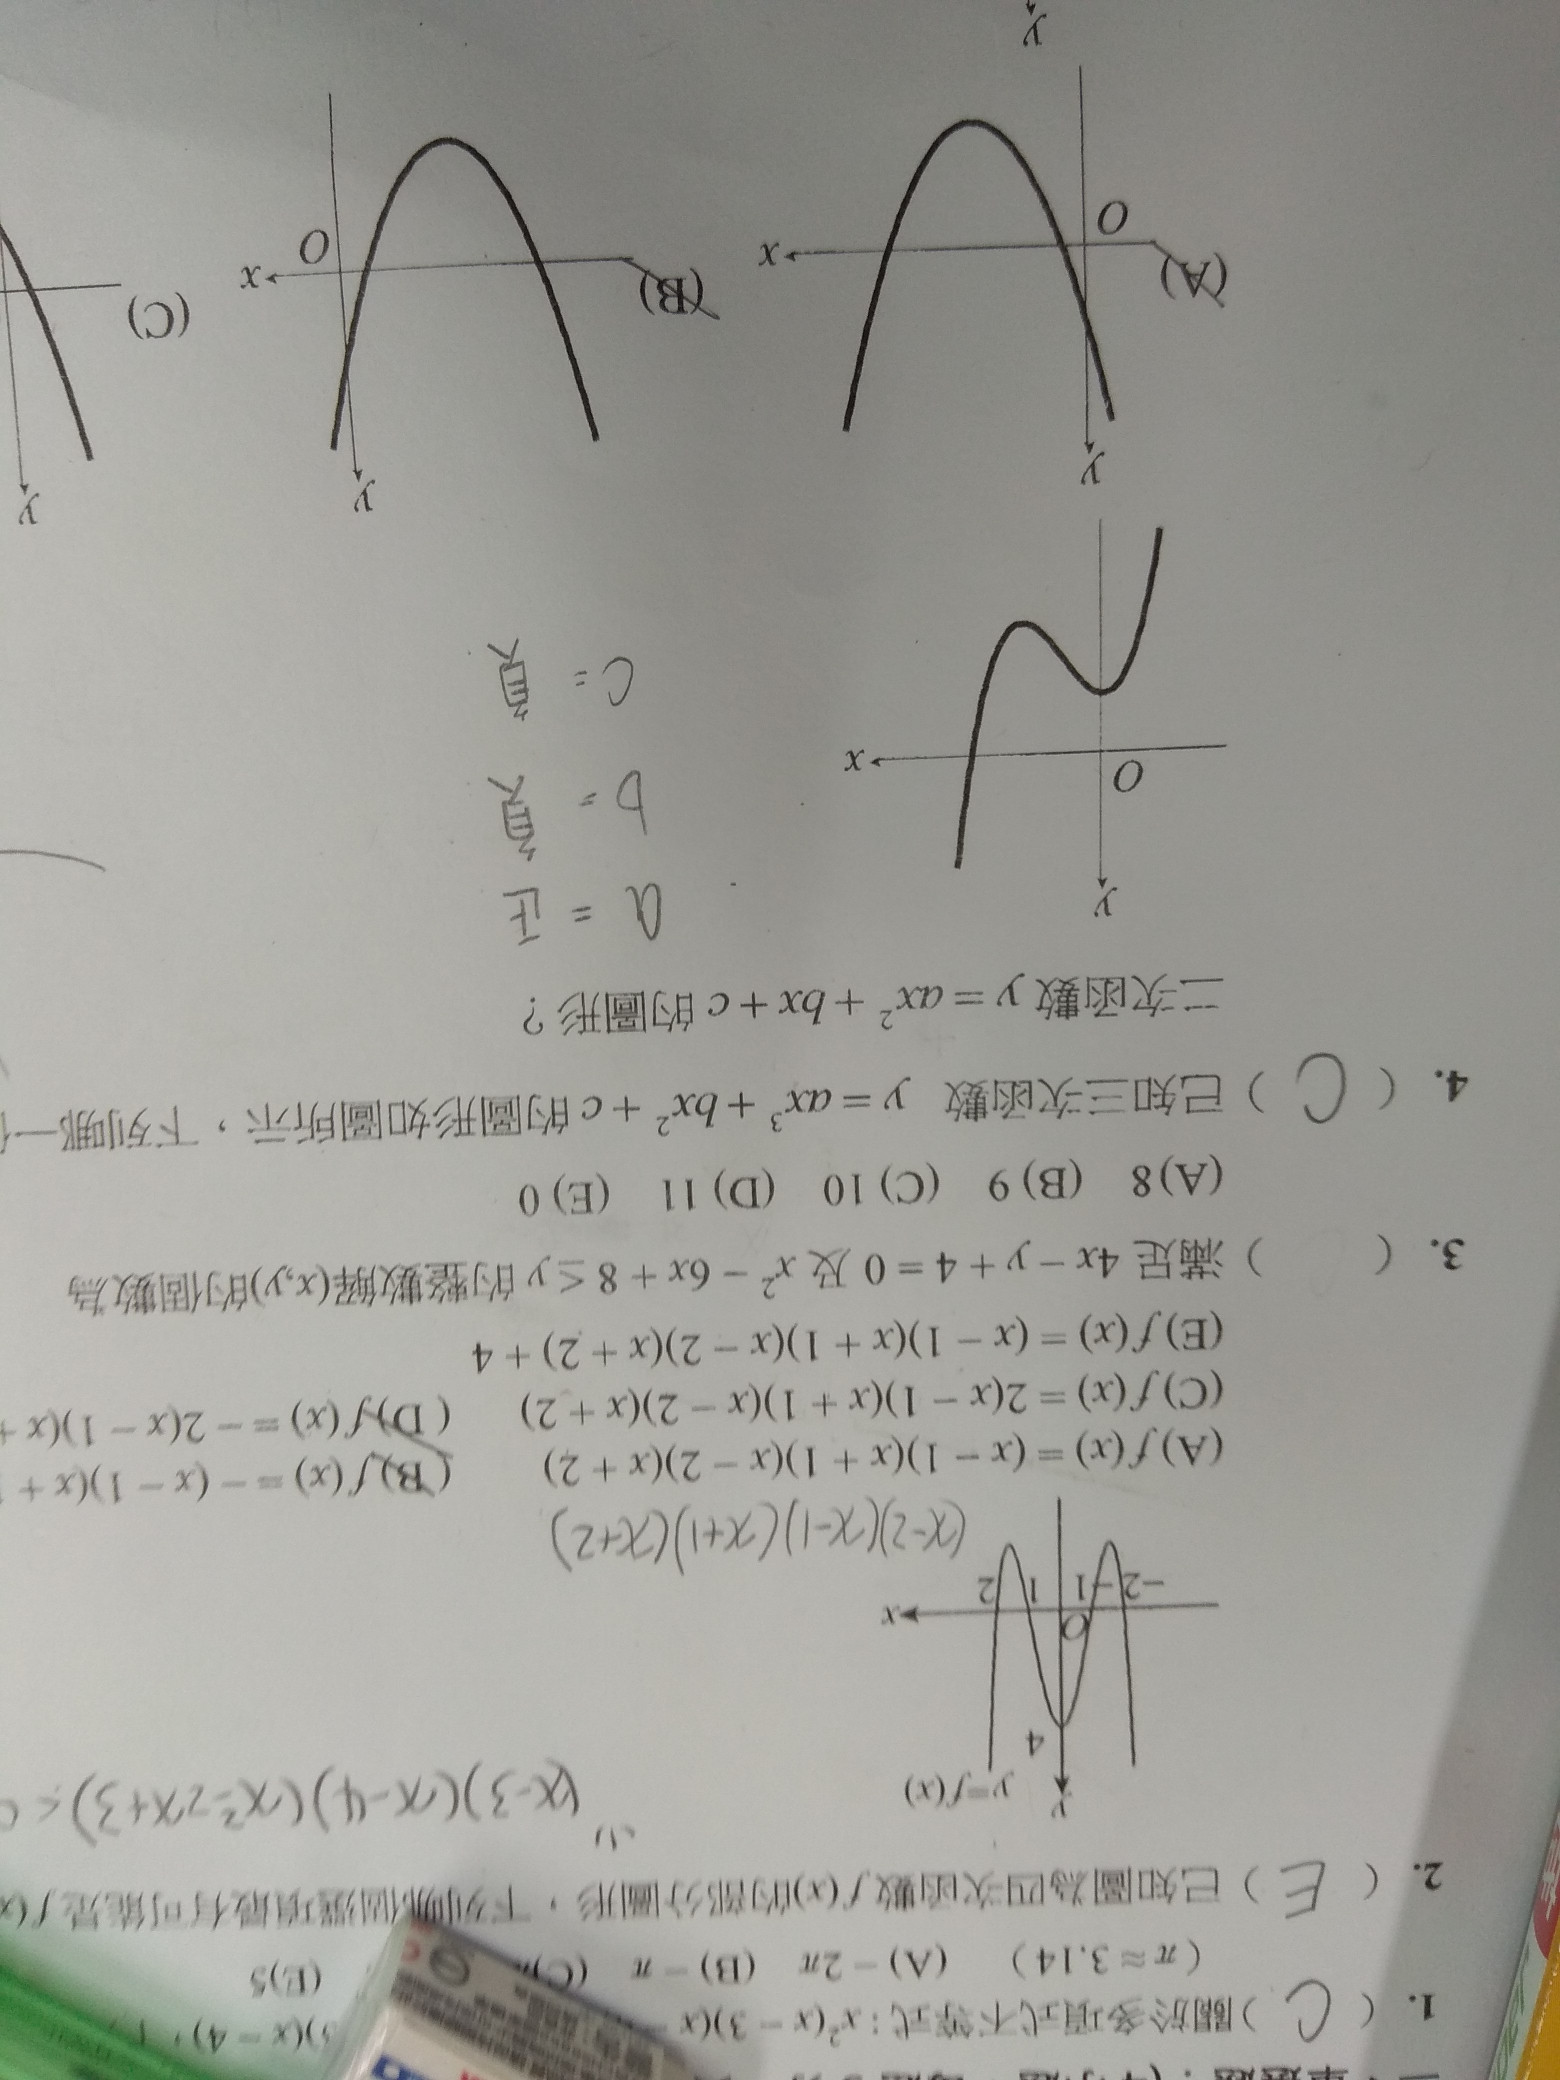 一、單選題：(4小題
1. ( C ) 關於多項式不等式：x²(x − 3)(x
3)(x − 4)
(π ≈ 3.14) (A) −2π (B) −π (C) (E)5
2. ( E ) 已知圖為四次函數 f(x)的部分圖形，下列哪個選項最有可能是 f(x
(x-3)(x-4)(x²-2x+3)<0
y
y=f(x)
4
O
x
−2 −1 1 2
(x-2)(x-1)(x+1)(x+2)
(A) f(x) = (x − 1)(x + 1)(x − 2)(x + 2) (B) f(x) = −(x − 1)(x +
(C) f(x) = 2(x − 1)(x + 1)(x − 2)(x + 2) (D) f(x) = −2(x − 1)(x +
(E) f(x) = (x − 1)(x + 1)(x − 2)(x + 2) + 4
3. ( ) 滿足 4x − y + 4 = 0 及 x² − 6x + 8 ≤ y 的整數解(x,y)的個數為
(A) 8 (B) 9 (C) 10 (D) 11 (E) 0
4. ( C ) 已知三次函數 y = ax³ + bx² + c 的圖形如圖所示，下列哪一
二次函數 y = ax² + bx + c 的圖形？
a = 正
b = 負
c = 負
y
O
x
y y y
(A) O x (B) O x (C)
y